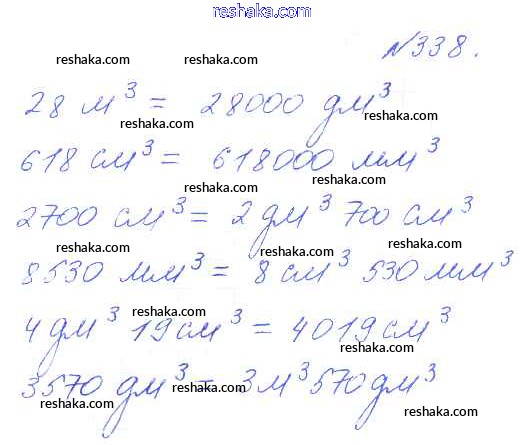 reshaka.com
№338.
reshaka.com reshaka.com reshaka.com
28 м³ = 28000 дм³
reshaka.com reshaka.com
618 см³ = 618000 мм³
reshaka.com reshaka.com
2700 см³ = 2 дм³ 700 см³
reshaka.com reshaka.com reshaka.com
8530 мм³ = 8 см³ 530 мм³
reshaka.com reshaka.com
4 дм³ 19 см³ = 4019 см³
reshaka.com
3570 дм³ = 3 м³ 570 дм³
reshaka.com reshaka.com reshaka.com